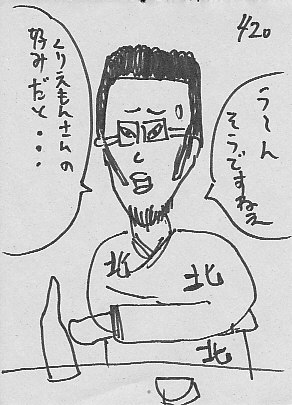 420
うーん
そうですねえ
くりえもんさんの
好みだと・・・
北
北
北